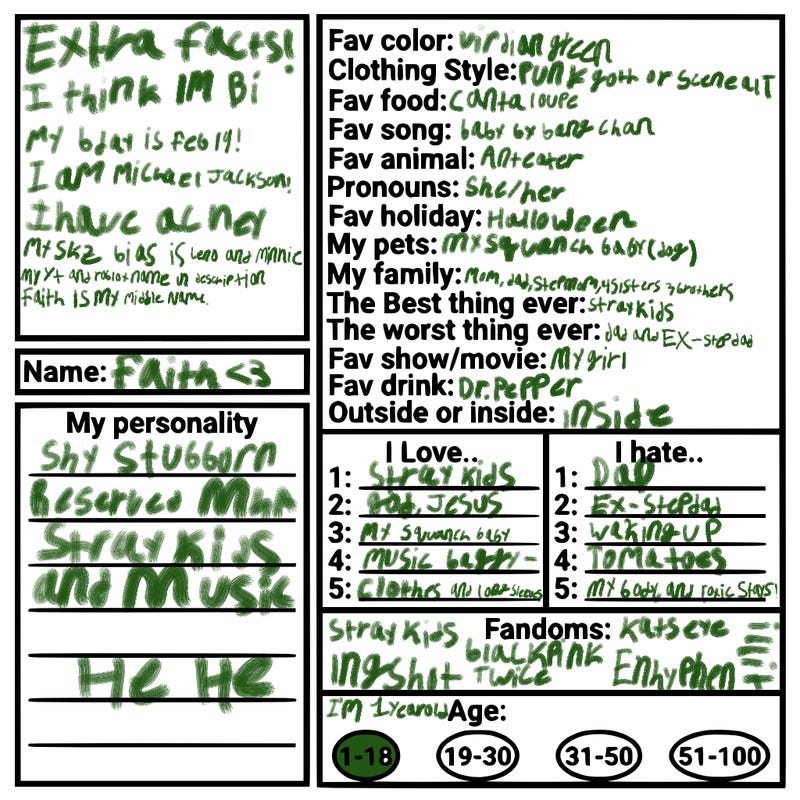 Extra facts!
I think IM Bi
My bday is Feb 14!
I am Michael Jackson!
I have acney
My SKZ bias is Leno and Minnie
My Yt and roblox name in description
Faith is my middle name.
Name: Faith <3
My personality
Shy Stubborn
Reserved
Stray Kids
and Music
He He
Fav color: virdian green
Clothing Style: Punk goth or scene alT
Fav food: cantaloupe
Fav song: baby by bang chan
Fav animal: Anteater
Pronouns: She/her
Fav holiday: Halloween
My pets: my squanch baby (dog)
My family: Mom, dad, stepmom, 4 sisters 3 brothers
The Best thing ever: stray kids
The worst thing ever: dad and EX-stepdad
Fav show/movie: My girl
Fav drink: Dr. Pepper
Outside or inside: inside
I Love..
1: Stray kids
2: God, Jesus
3: My squanch baby
4: music baggy-
5: Clothes and long sleeves
I hate..
1: Dad
2: Ex-stepdad
3: waking up
4: Tomatoes
5: my body, and toxic Stays!
Stray Kids Fandoms: Katseye
blackpink
Twice Enhyphen
I'm 1 year old Age:
1-18 19-30 31-50 51-100